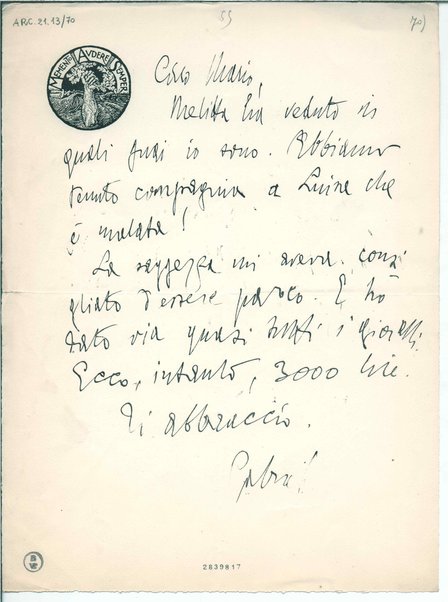 ARC.21.13/70
55
70)
MEMENTO AUDERE SEMPER
Caro Mario,
Melitta ha veduto in
quali guai io sono. Abbiamo
tenuto compagnia a Luisa che
è malata!
La saggezza mi aveva consi
gliato d'essere parco. E ho
dato via quasi tutti i gioielli.
Ecco, intanto, 3000 lire.
Ti abbraccio.
2839817